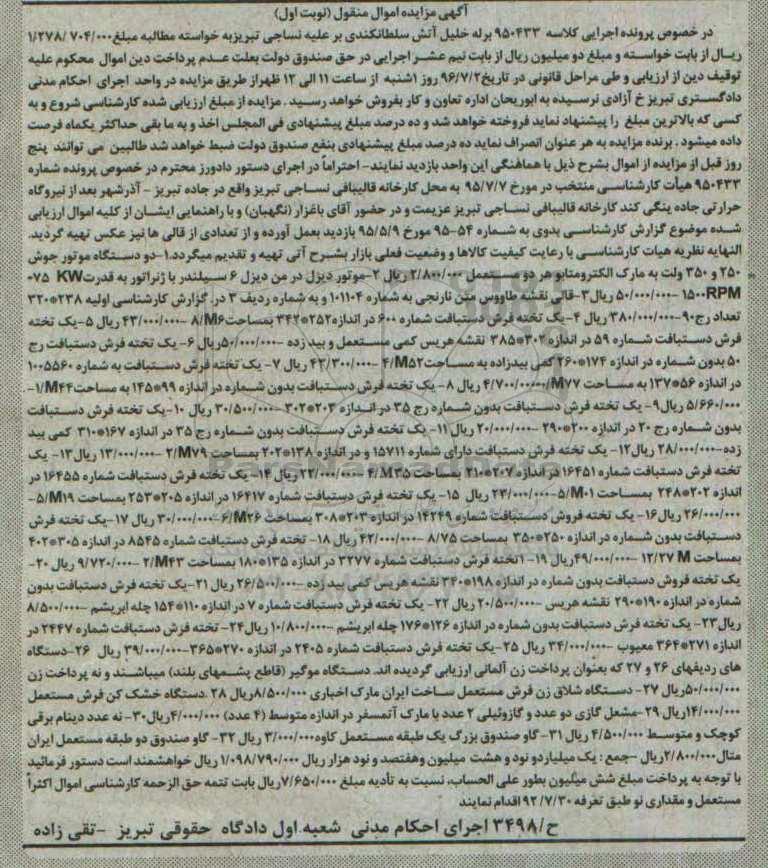 آگهی مزایده اموال منقول (نوبت اول)
در خصوص پرونده اجرایی کلاسه ۹۵۰۴۳۳ برله خلیل آتش سلطانکندی بر علیه نساجی تبریز به خواسته مطالبه مبلغ ۱/۲۷۸/۷۰۴/۰۰۰
ریـال از بابت خواسـته و مبلغ دو میلیون ریال از بابت نیم عشـر اجرایی در حق صندوق دولت بعلت عـدم پرداخت دین اموال محکوم علیه
توقیف دین از ارزیابی و طی مراحل قانونی در تاریخ ۹۶/۷/۲ روز ۱شنبه از ساعت ۱۱ الی ۱۲ ظهر از طریق مزایده در واحد اجرای احکام مدنی
دادگستری تبریز خ آزادی نرسیده به ابوریحان اداره تعاون و کار بفروش خواهد رسید . مزایده از مبلغ ارزیابی شده کارشناسی شروع و به
کسی که بالاترین مبلغ را پیشنهاد نماید فروخته خواهد شد و ده درصد مبلغ پیشنهادی فی المجلس اخذ و به ما بقی حداکثر یکماه فرصت
داده میشود . برنده مزایده به هر عنوان انصراف نماید ده درصد مبلغ پیشنهادی بنفع صندوق دولت ضبط خواهد شد طالبین می توانند پنج
روز قبل از مزایده از اموال بشرح ذیل با هماهنگی این واحد بازدید نمایند- احتراماً در اجرای دستور دادورز محترم در خصوص پرونده شماره
۹۵۰۴۳۳ هیأت کارشناسـی منتخب در مورخ ۹۵/۷/۷ به محل کارخانه قالیبافی نسـاجی تبریز واقع در جاده تبریز - آذرشهر بعد از نیروگاه
حرارتی جاده ینگی کند کارخانه قالیبافی نساجی تبریز عزیمت و در حضور آقای باغزار (نگهبان) و با راهنمایی ایشـان از کلیه اموال ارزیابی
شـده موضوع گزارش کارشناسـی بدوی به شمـاره ۵۴-۹۵ مورخ ۹۵/۵/۹ بازدید بعمل آورده و از تعدادی از قالی ها نیز عکس تهیه گردید.
النهایه نظریه هیات کارشناسـی با رعایت کیفیت کالاها و وضعیت فعلی بازار بشـرح آتی تهیه و تقدیم میگردد.۱-دو دسـتگاه موتور جوش
۲۵۰ و ۳۵۰ ولت به مارک الکترومتابو هر دو مسـتعمل ۲/۸۰۰/۰۰۰ ریال ۲-موتور دیزل در من دیزل ۶ سیلندر با ژنراتور به قدرت ۰۷۵ KW
۱۵۰۰RPM -۵۰/۰۰۰/۰۰۰ ریال ۳-قالی نقشه طاووس متن نارنجی به شماره ۱۰۱۱۰۴ و به شماره ردیف ۳ در گزارش کارشناسی اولیه ۲۳۸*۳۲۰
تعداد رج۹۰-۳۸۰/۰۰۰/۰۰۰ ریال ۴-یک تخته فرش دستبافت شماره ۶۰۰ در اندازه ۲۵۲*۳۴۲ بمساحت ۸/M۶ -۴۳/۰۰۰/۰۰۰ ریال ۵-یک تخته
فرش دسـتبافت شـماره ۵۹ در اندازه ۳۰۲*۳۸۵ نقشه هریس کمی مسـتعمل و بید زده -۵۰/۰۰۰/۰۰۰ریال ۶- یک تخته فرش دستبافت رج
۵۰ بدون شـماره در اندازه ۱۷۴*۲۶۰ کمی بیدزاده به مسـاحت ۴/M۵۲ -۴۲/۳۰۰/۰۰۰ ریال ۷- یک تخته فرش دسـتبافت به شماره ۱۰۰۵۵۶۰
در اندازه ۵۶*۱۳۷ به مساحت /M۷۷ ۴/۷۰۰/۰۰۰ ریال ۸- یک تخته فرش دستبافت بدون شـماره در اندازه ۹۹*۱۴۵ به مساحت ۱/M۴۴-
۵/۶۶۰/۰۰۰ ریال۹- یک تخته فرش دسـت بافت بدون شـماره رج ۳۵ در انـدازه ۲۰۳*۳۰۲ -۳۰/۵۰۰/۰۰۰ ریال ۱۰-یک تخته فرش دستبافت
بدون شـماره رج ۲۰ در اندازه ۲۰۰*۲۹۰ -۲۰/۰۰۰/۰۰۰ ریال ۱۱- یک تخته فرش دستبافت بدون شـماره رج ۳۵ در اندازه ۱۶۷*۳۱۰ کمی بید
زده-۲۸/۰۰۰/۰۰۰ ریال۱۲- یک تخته فرش دستبافت دارای شماره ۱۵۷۱۱ و در اندازه ۱۳۸*۲۰۲ بمساحت ۲/M۷۹ -۱۳/۰۰۰/۰۰۰ ریال۱۳- یک
تخته فرش دستبافت شماره ۱۶۴۵۱ در اندازه ۲۰۷*۲۱۰ بمساحت ۴/M۳۵ -۲۲/۰۰۰/۰۰۰ ریال ۱۴- یک تخته فرش دستبافت شماره ۱۶۴۵۵ در
اندازه ۲۰۲*۲۴۸ بمسـاحت ۵/M۰۱-۲۳/۰۰۰/۰۰۰ ریال ۱۵- یک تخته فرش دستبافت شماره ۱۶۴۱۷ در اندازه ۲۰۵*۲۵۳ بمساحت ۵/M۱۹-
۲۶/۰۰۰/۰۰۰ ریال۱۶- یک تخته فروش دسـتبافت شماره ۱۴۲۴۹ در اندازه ۲۰۳*۳۰۸ بمساحت ۶/M۲۶ -۳۰/۰۰۰/۰۰۰ ریال ۱۷-یک تخته فرش
دستبافت بدون شماره در اندازه ۲۵۰*۳۵۰ بمساحت ۸/۷۵ -۴۲/۰۰۰/۰۰۰ ریال ۱۸- تخته فرش دستبافت شماره ۸۵۴۵ در اندازه ۳۰۵*۴۰۲
بمساحت ۱۲/۲۷ M -۴۹/۰۰۰/۰۰۰ریال ۱۹- ۱تخته فرش دستبافت شماره ۳۲۷۷ در اندازه ۱۳۵*۱۸۰ بمساحت ۲/M۴۳ -۹/۷۲۰/۰۰۰ ریال ۲۰-
یک تخته فروش دستبافت بدون شماره در اندازه ۱۹۸*۳۴۰ نقشه هریس کمی بید زده -۲۶/۵۰۰/۰۰۰ ریال ۲۱-یک تخته فرش دستبافت بدون
شماره در اندازه ۱۹۰*۲۹۰ نقشه هریس -۲۰/۵۰۰/۰۰۰ ریال ۲۲- یک تخته فرش دستبافت شماره ۷ در اندازه ۱۱۰*۱۵۴ چله ابریشم -۸/۵۰۰/۰۰۰
ریال۲۳- یک تخته فرش دستبافت بدون شماره در اندازه ۱۲۶*۱۷۶ چله ابریشم -۱۰/۸۰۰/۰۰۰ ریال۲۴- تخته فرش دستبافت شماره ۲۴۴۷ در
اندازه ۲۷۱*۳۶۴ معیوب -۳۴/۰۰۰/۰۰۰ ریال ۲۵-یک تخته فرش دستبافت شماره ۲۴۰۵ در اندازه ۲۷۰*۳۶۵-۳۹/۰۰۰/۰۰۰ ریال ۲۶-دستگاه
های ردیفهای ۲۶ و ۲۷ که بعنوان پرداخت زن آلمانی ارزیابی گردیده اند. دسـتگاه موگیر (قاطع پشـمهای بلند) میباشـند و نه پرداخت زن
۵۰/۰۰۰/۰۰۰ریال ۲۷- دسـتگاه شلاق زن فرش مستعمل سـاخت ایران مارک اخباری ۸/۵۰۰/۰۰۰ریال ۲۸ .دستگاه خشک کن فرش مستعمل
۱۴/۰۰۰/۰۰۰ریال ۲۹-مشعل گازی دو عدد و گازوئیلی ۲ عدد با مارک آتمسفر در اندازه متوسط (۴ عدد) ۴/۰۰۰/۰۰۰ریال ۳۰- نه عدد دینام برقی
کوچک و متوسـط ۴/۵۰۰/۰۰۰ ریال ۳۱- گاو صندوق بزرگ یک طبقه مسـتعمل کاوه ۳/۰۰۰/۰۰۰ ریال ۳۲- گاو صندوق دو طبقه مستعمل ایران
متال ۲/۸۰۰/۰۰۰ریال -جمع : یک میلیارد و نود و هشت میلیون وهفتصد و نود هزار ریال ۱/۰۹۸/۷۹۰/۰۰۰ ریال خواهشمند است دستور فرمائید
با توجه به پرداخت مبلغ شش میلیون بطور علی الحساب، نسبت به تأدیه مبلغ ۷/۶۵۰/۰۰۰ریال بابت تتمه حق الزحمه کارشناسی اموال اکثراً
مستعمل و مقداری نو طبق تعرفه ۹۲/۷/۳۰ اقدام نمایند
ح/۳۴۹۸ اجرای احکام مدنی شعبه اول دادگاه حقوقی تبریز -تقی زاده